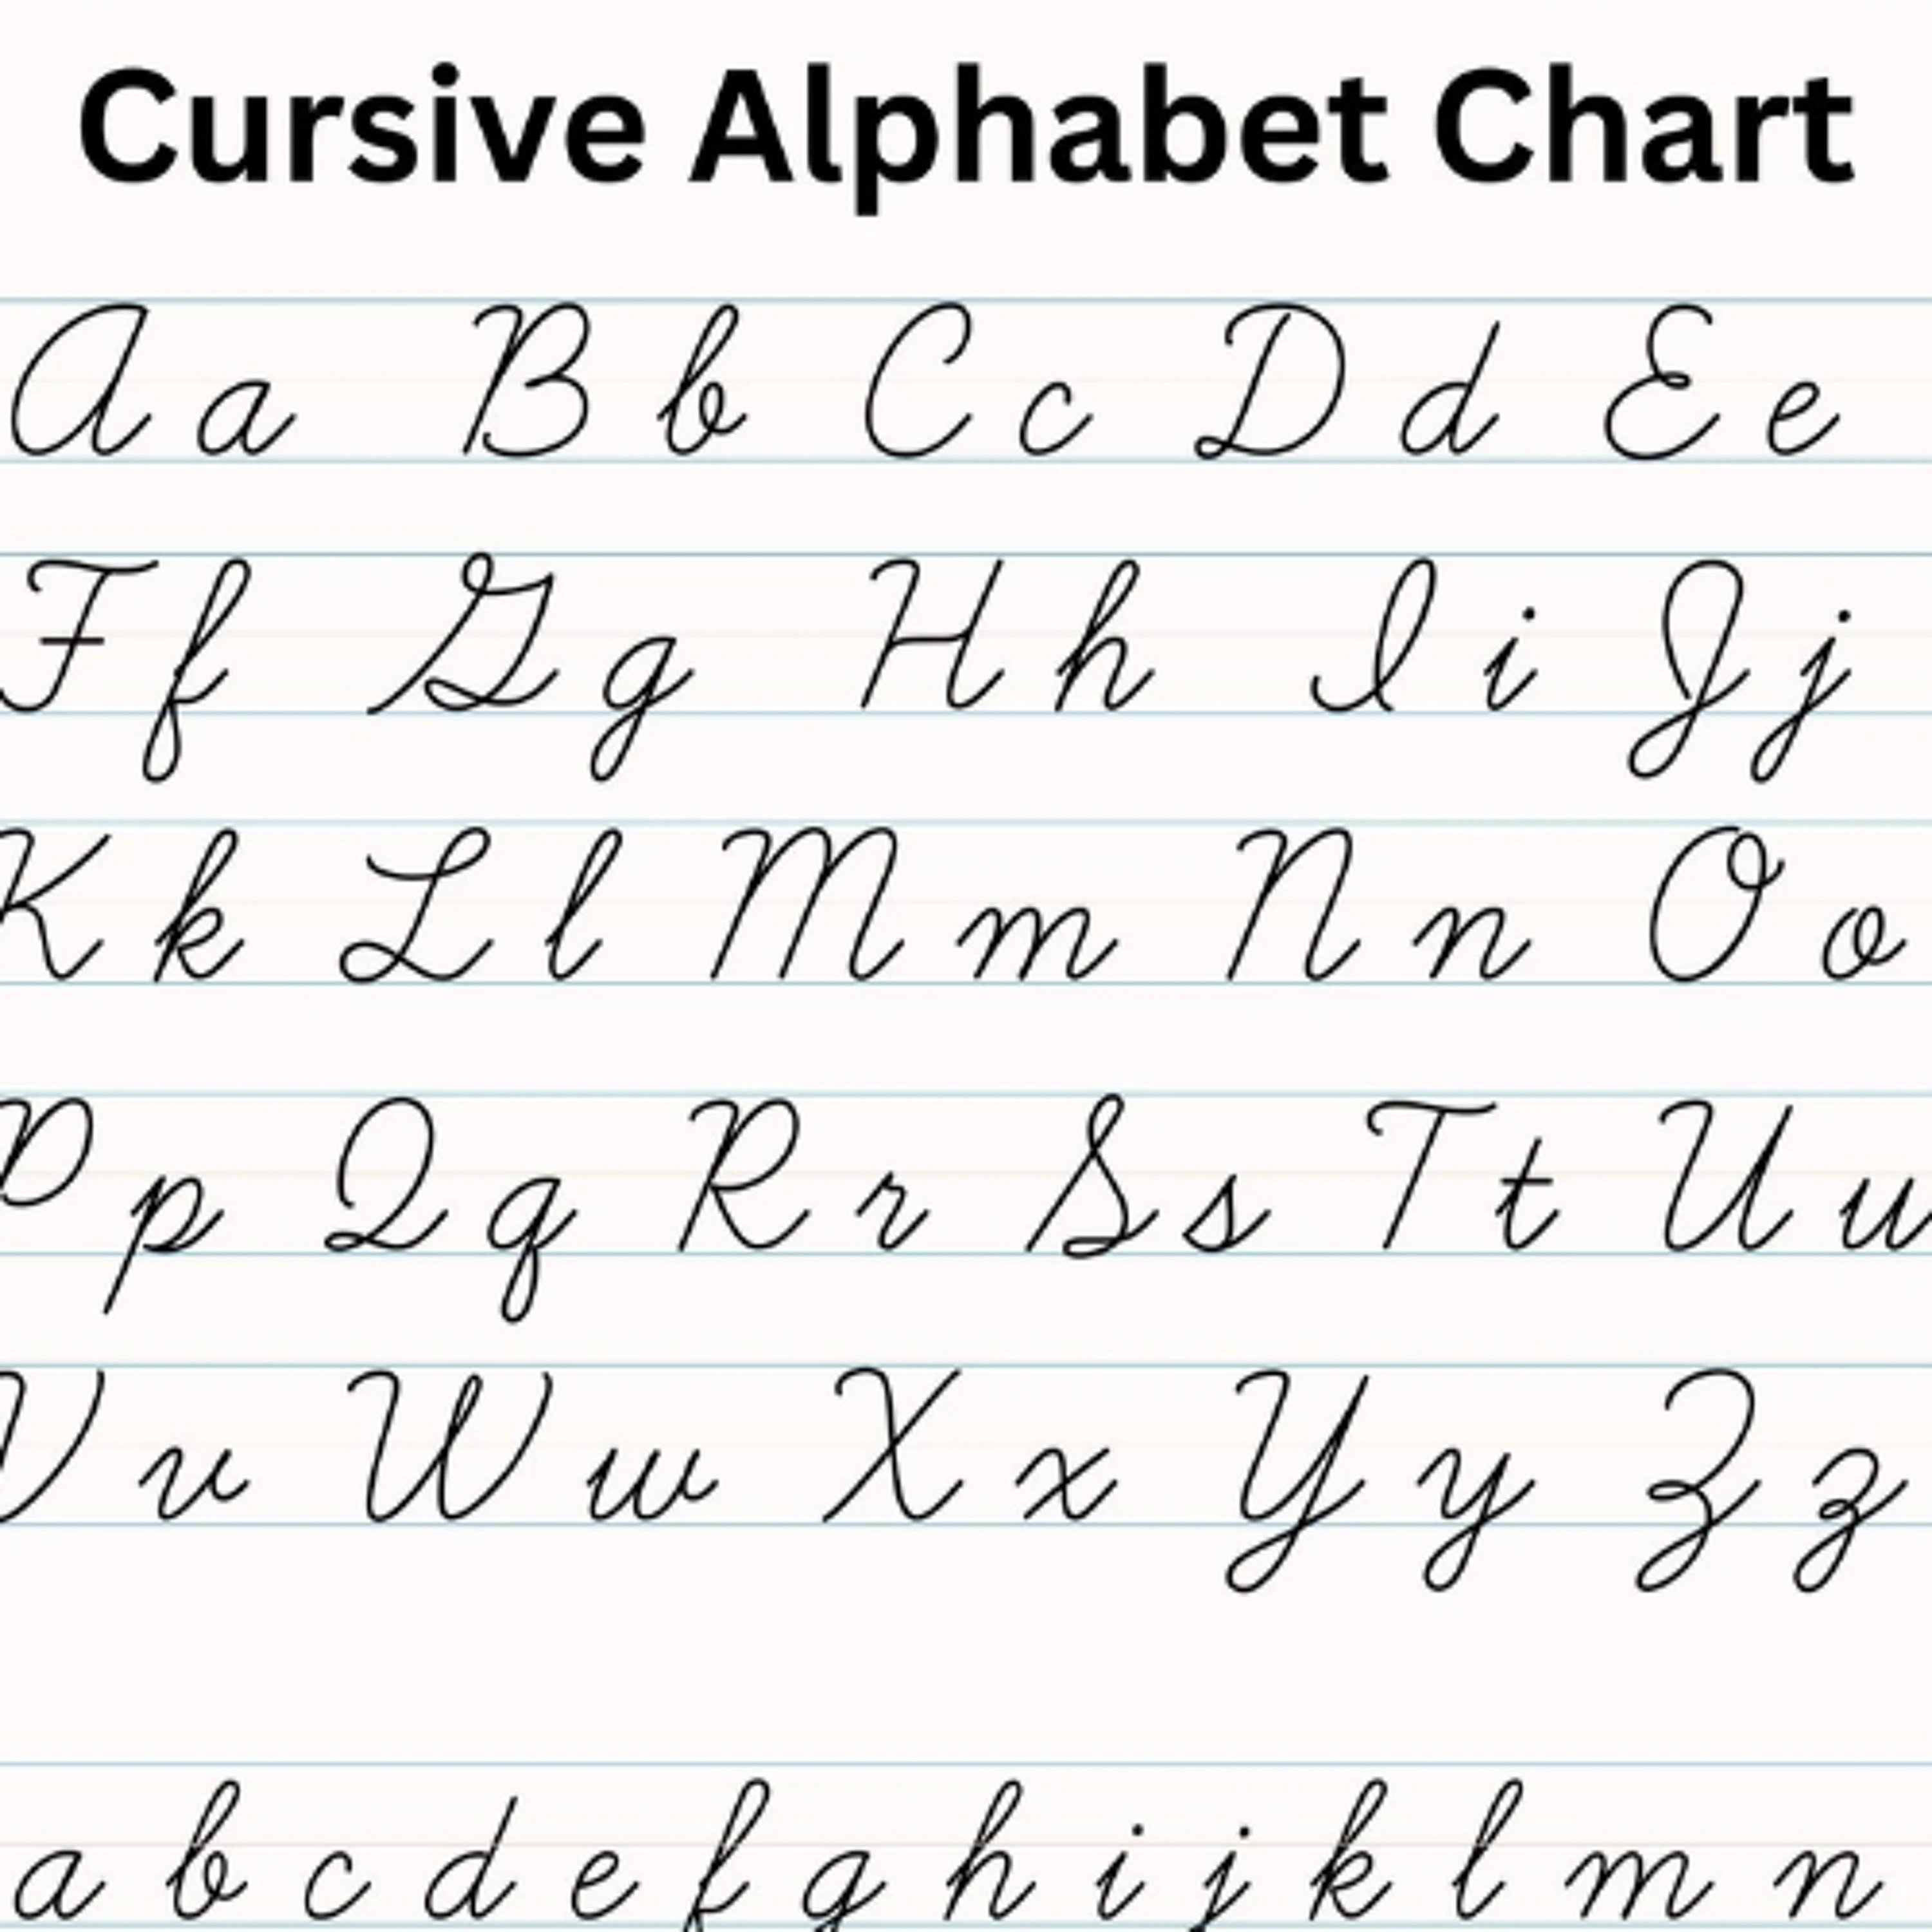 Cursive Alphabet Chart
A a B b C c D d E e
F f G g H h I i J j
K k L l M m N n O o
P p Q q R r S s T t U u
V v W w X x Y y Z z
a b c d e f g h i j k l m n